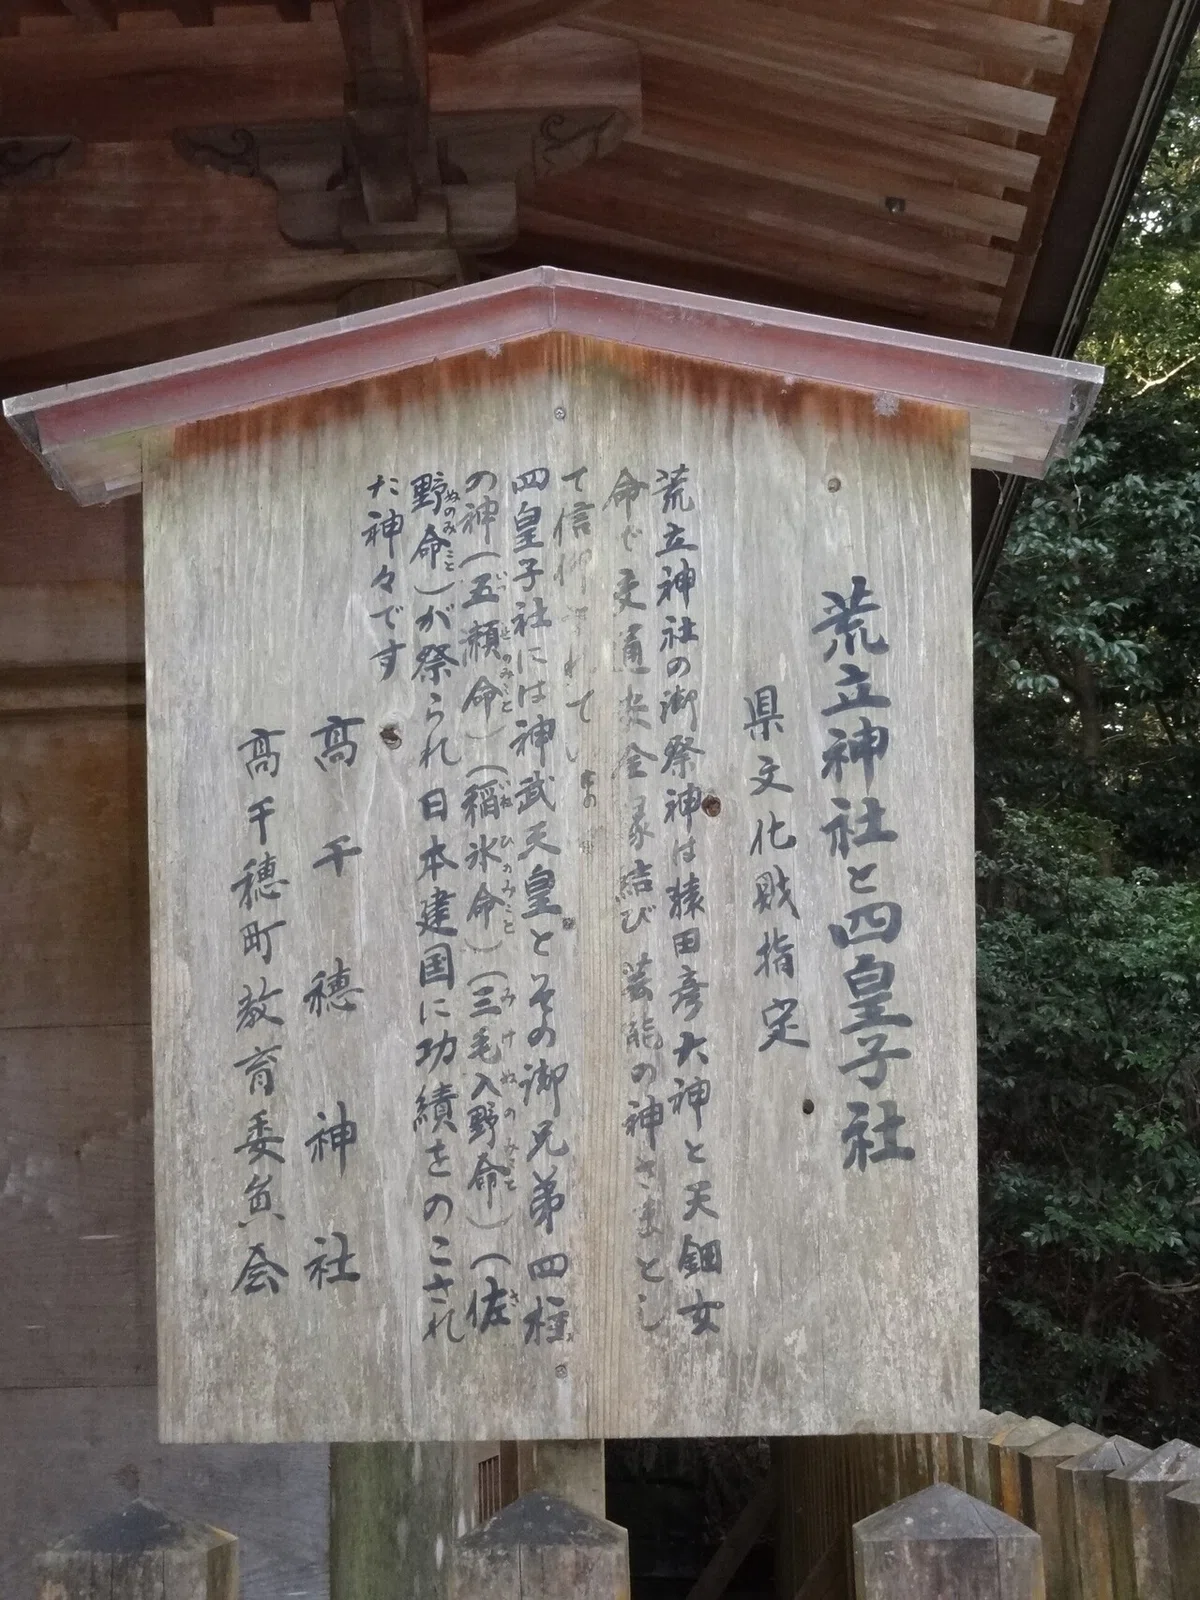 荒立神社と四皇子社
県文化財指定
荒立神社の御祭神は猿田彦大神と天鈿女
命で交通安全縁結び芸能の神さまとし
て信仰されてい
四皇子社には神武天皇とその御兄弟四柱
の神(五瀬命)(稲氷命)(三毛入野命)(佐
野命)が祭られ日本建国に功績をのこされ
た神々です
高千穂神社
高千穂町教育委員会